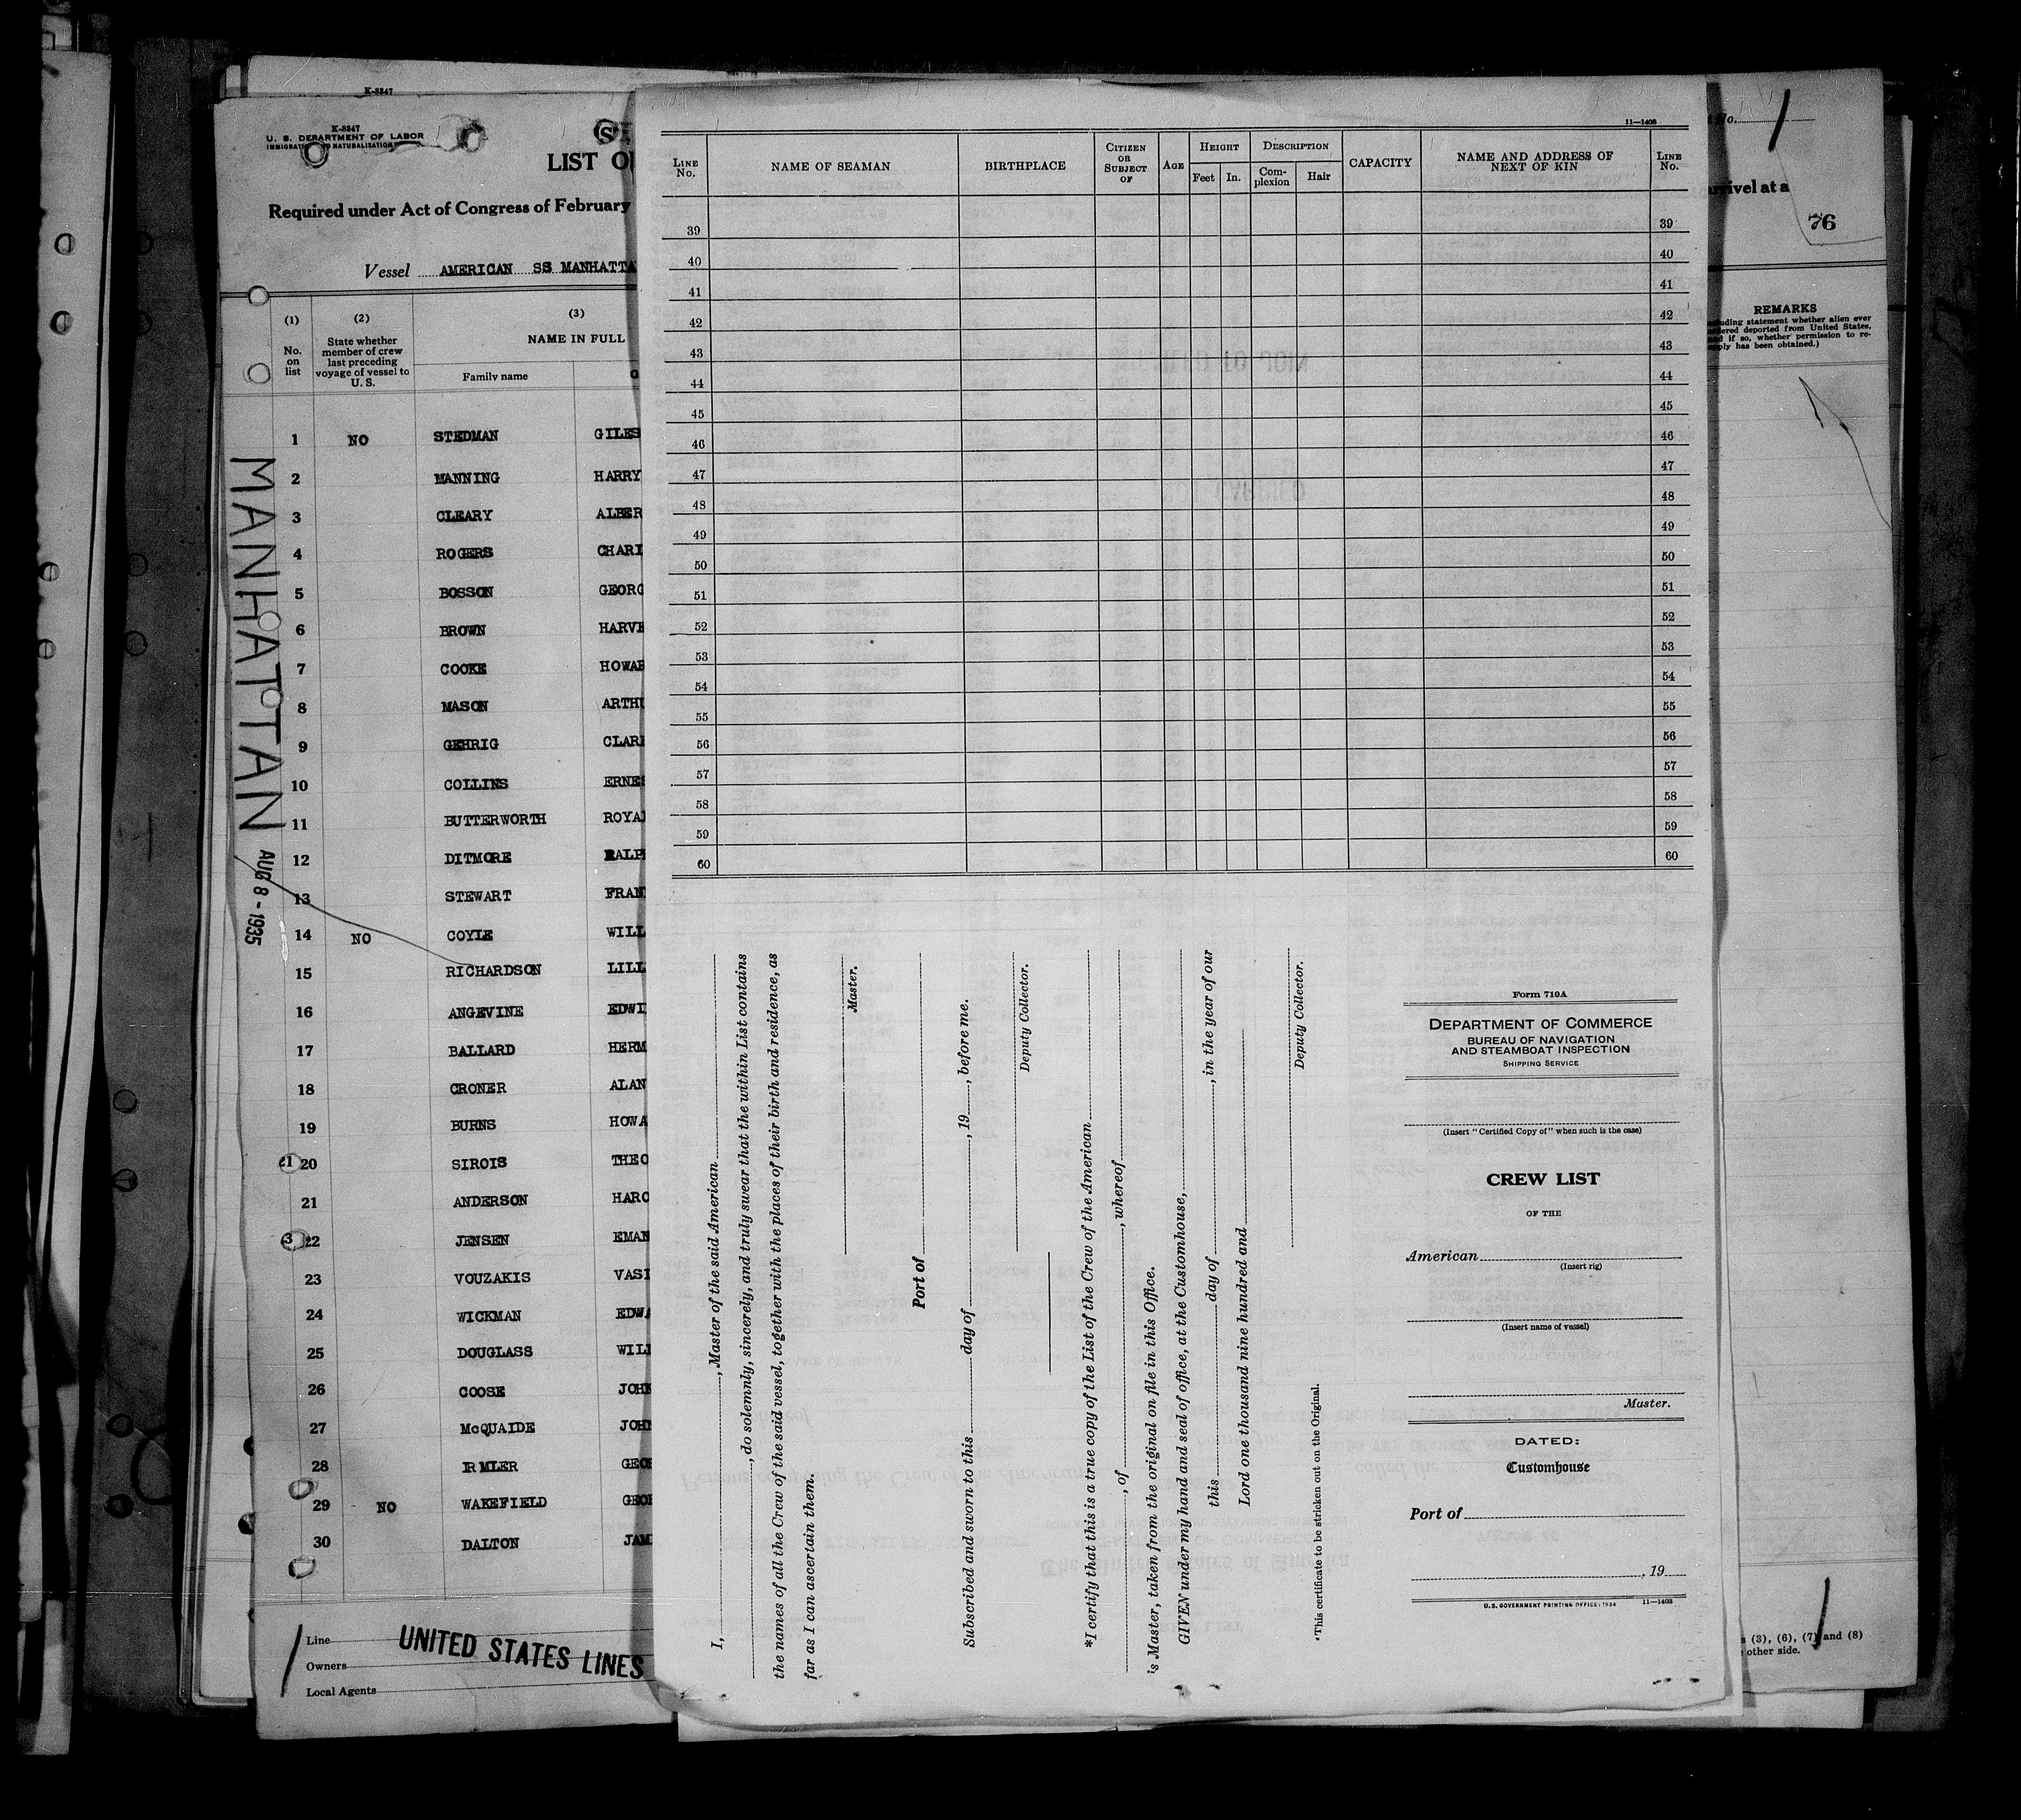 K-8347
K-8347
U. S. DEPARTMENT OF LABOR
LIST O
Required under Act of Congress of February
Vessel AMERICAN SS MANHATTA
(1) (2) (3)
No. on list
State whether member of crew last preceding voyage of vessel to U. S.
NAME IN FULL
Family name G
1 NO STEDMAN GILES
2 MANNING HARRY
3 CLEARY ALBER
4 ROGERS CHARL
5 BOSSON GEORG
6 BROWN HARVE
7 COOKE HOWAR
8 MASON ARTHU
9 GEHRIG CLARE
10 COLLINS ERNES
11 BUTTERWORTH ROYAL
12 DITMORE RALPH
13 STEWART FRAN
14 NO COYLE WILL
15 RICHARDSON LILL
16 ANGEVINE EDWI
17 BALLARD HERM
18 CRONER ALAN
19 BURNS HOWA
20 SIROIS THEO
21 ANDERSON HARO
22 JENSEN EMAN
23 VOUZAKIS VASI
24 WICKMAN EDWA
25 DOUGLASS WILL
26 COOSE JOHN
27 McQUAIDE JOHN
28 IRMLER GEOR
29 NO WAKEFIELD GEOR
30 DALTON JAM
MANHATTAN
AUG 8 - 1935
Line
Owners
Local Agents
UNITED STATES LINES
11—1408
LINE No.
NAME OF SEAMAN
BIRTHPLACE
CITIZEN OR SUBJECT OF
AGE
HEIGHT
Feet In.
DESCRIPTION
Com-plexion Hair
CAPACITY
NAME AND ADDRESS OF NEXT OF KIN
LINE No.
39 39
40 40
41 41
42 42
43 43
44 44
45 45
46 46
47 47
48 48
49 49
50 50
51 51
52 52
53 53
54 54
55 55
56 56
57 57
58 58
59 59
60 60
I, , Master of the said American
, do solemnly, sincerely, and truly swear that the within List contains
the names of all the Crew of the said vessel, together with the places of their birth and residence, as
far as I can ascertain them.
Master.
Port of
Subscribed and sworn to this day of , 19 , before me.
Deputy Collector.
*I certify that this is a true copy of the List of the Crew of the American
, of , whereof
is Master, taken from the original on file in this Office.
GIVEN under my hand and seal of office, at the Customhouse,
this day of , in the year of our
Lord one thousand nine hundred and
Deputy Collector.
*This certificate to be stricken out on the Original.
Form 710A
DEPARTMENT OF COMMERCE
BUREAU OF NAVIGATION
AND STEAMBOAT INSPECTION
SHIPPING SERVICE
(Insert "Certified Copy of" when such is the case)
CREW LIST
OF THE
American
(Insert rig)
(Insert name of vessel)
Master.
DATED:
Customhouse
Port of
, 19
U.S. GOVERNMENT PRINTING OFFICE: 1934 11—1408
No.
arrival at a
76
REMARKS
(3), (6), (7) and (8)
other side.